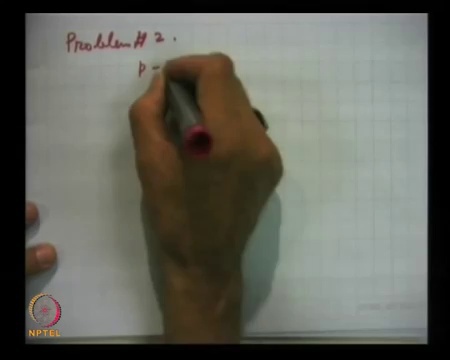 Problem # 2.
p -
NPTEL